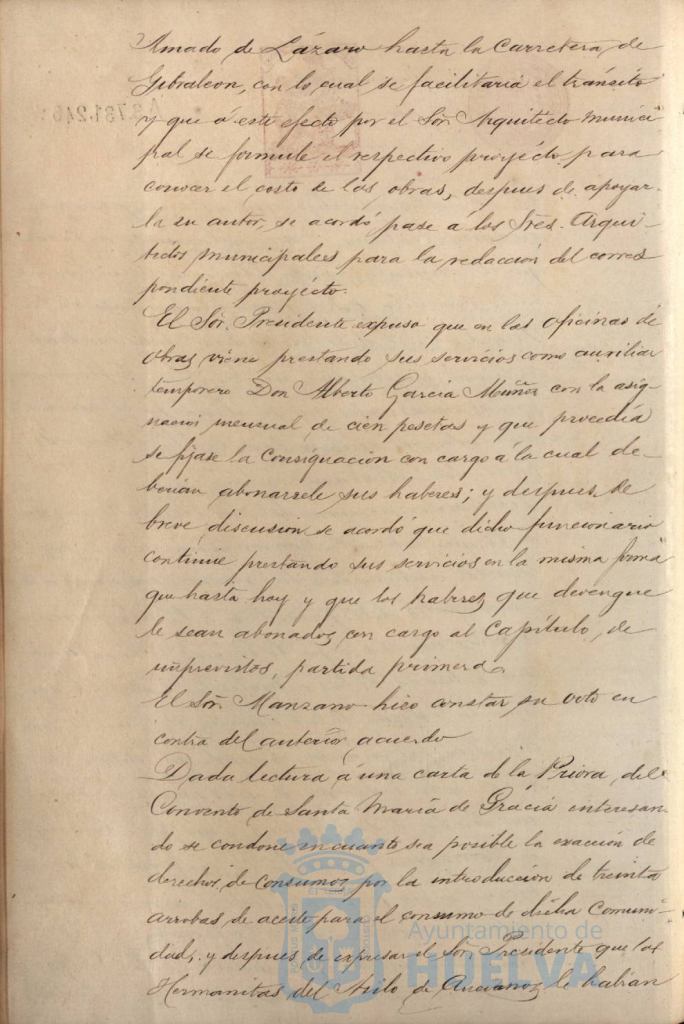 Amado de Lázaro hasta la Carretera de
Gibraleon, con lo cual se facilitaria el tránsito
y que á este efecto por el Sor. Arquitecto munici
pal se formule el respectivo proyecto para
conocer el costo de las obras, despues de apoyar-
la su autor, se acordó pase á los Sres. Arqui-
tectos municipales para la redacción del corres
pondiente proyécto.
El Sor. Presidente expuso que en las oficinas de
obras viene prestando sus servicios como auxiliar
temporero Don Alberto Garcia Muñoz con la asig-
nacion mensual de cien pesetas y que procedía
se fijase la Consignacion con cargo á la cual de-
berian abonarsele sus haberes; y despues de
breve discusion se acordó que dicho funcionario
continúe prestando sus servicios en la misma forma
que hasta hoy y que los haberes que devengue
le sean abonados con cargo al Capítulo de
imprevistos, partida primera.
El Sor. Manzano hizo constar su voto en
contra del anterior acuerdo
Dada lectura á una carta de la Priora del
Convento de Santa María de Grácia interesan-
do se condone en cuanto sea posible la exacción de
derechos de Consumos por la introducción de treinta
arrobas de aceite para el consumo de dicha Comuni-
dad, y despues de expresar el Sor. Presidente que las
Hermanitas del Asilo de Ancianos le habian
Ayuntamiento de
HUELVA